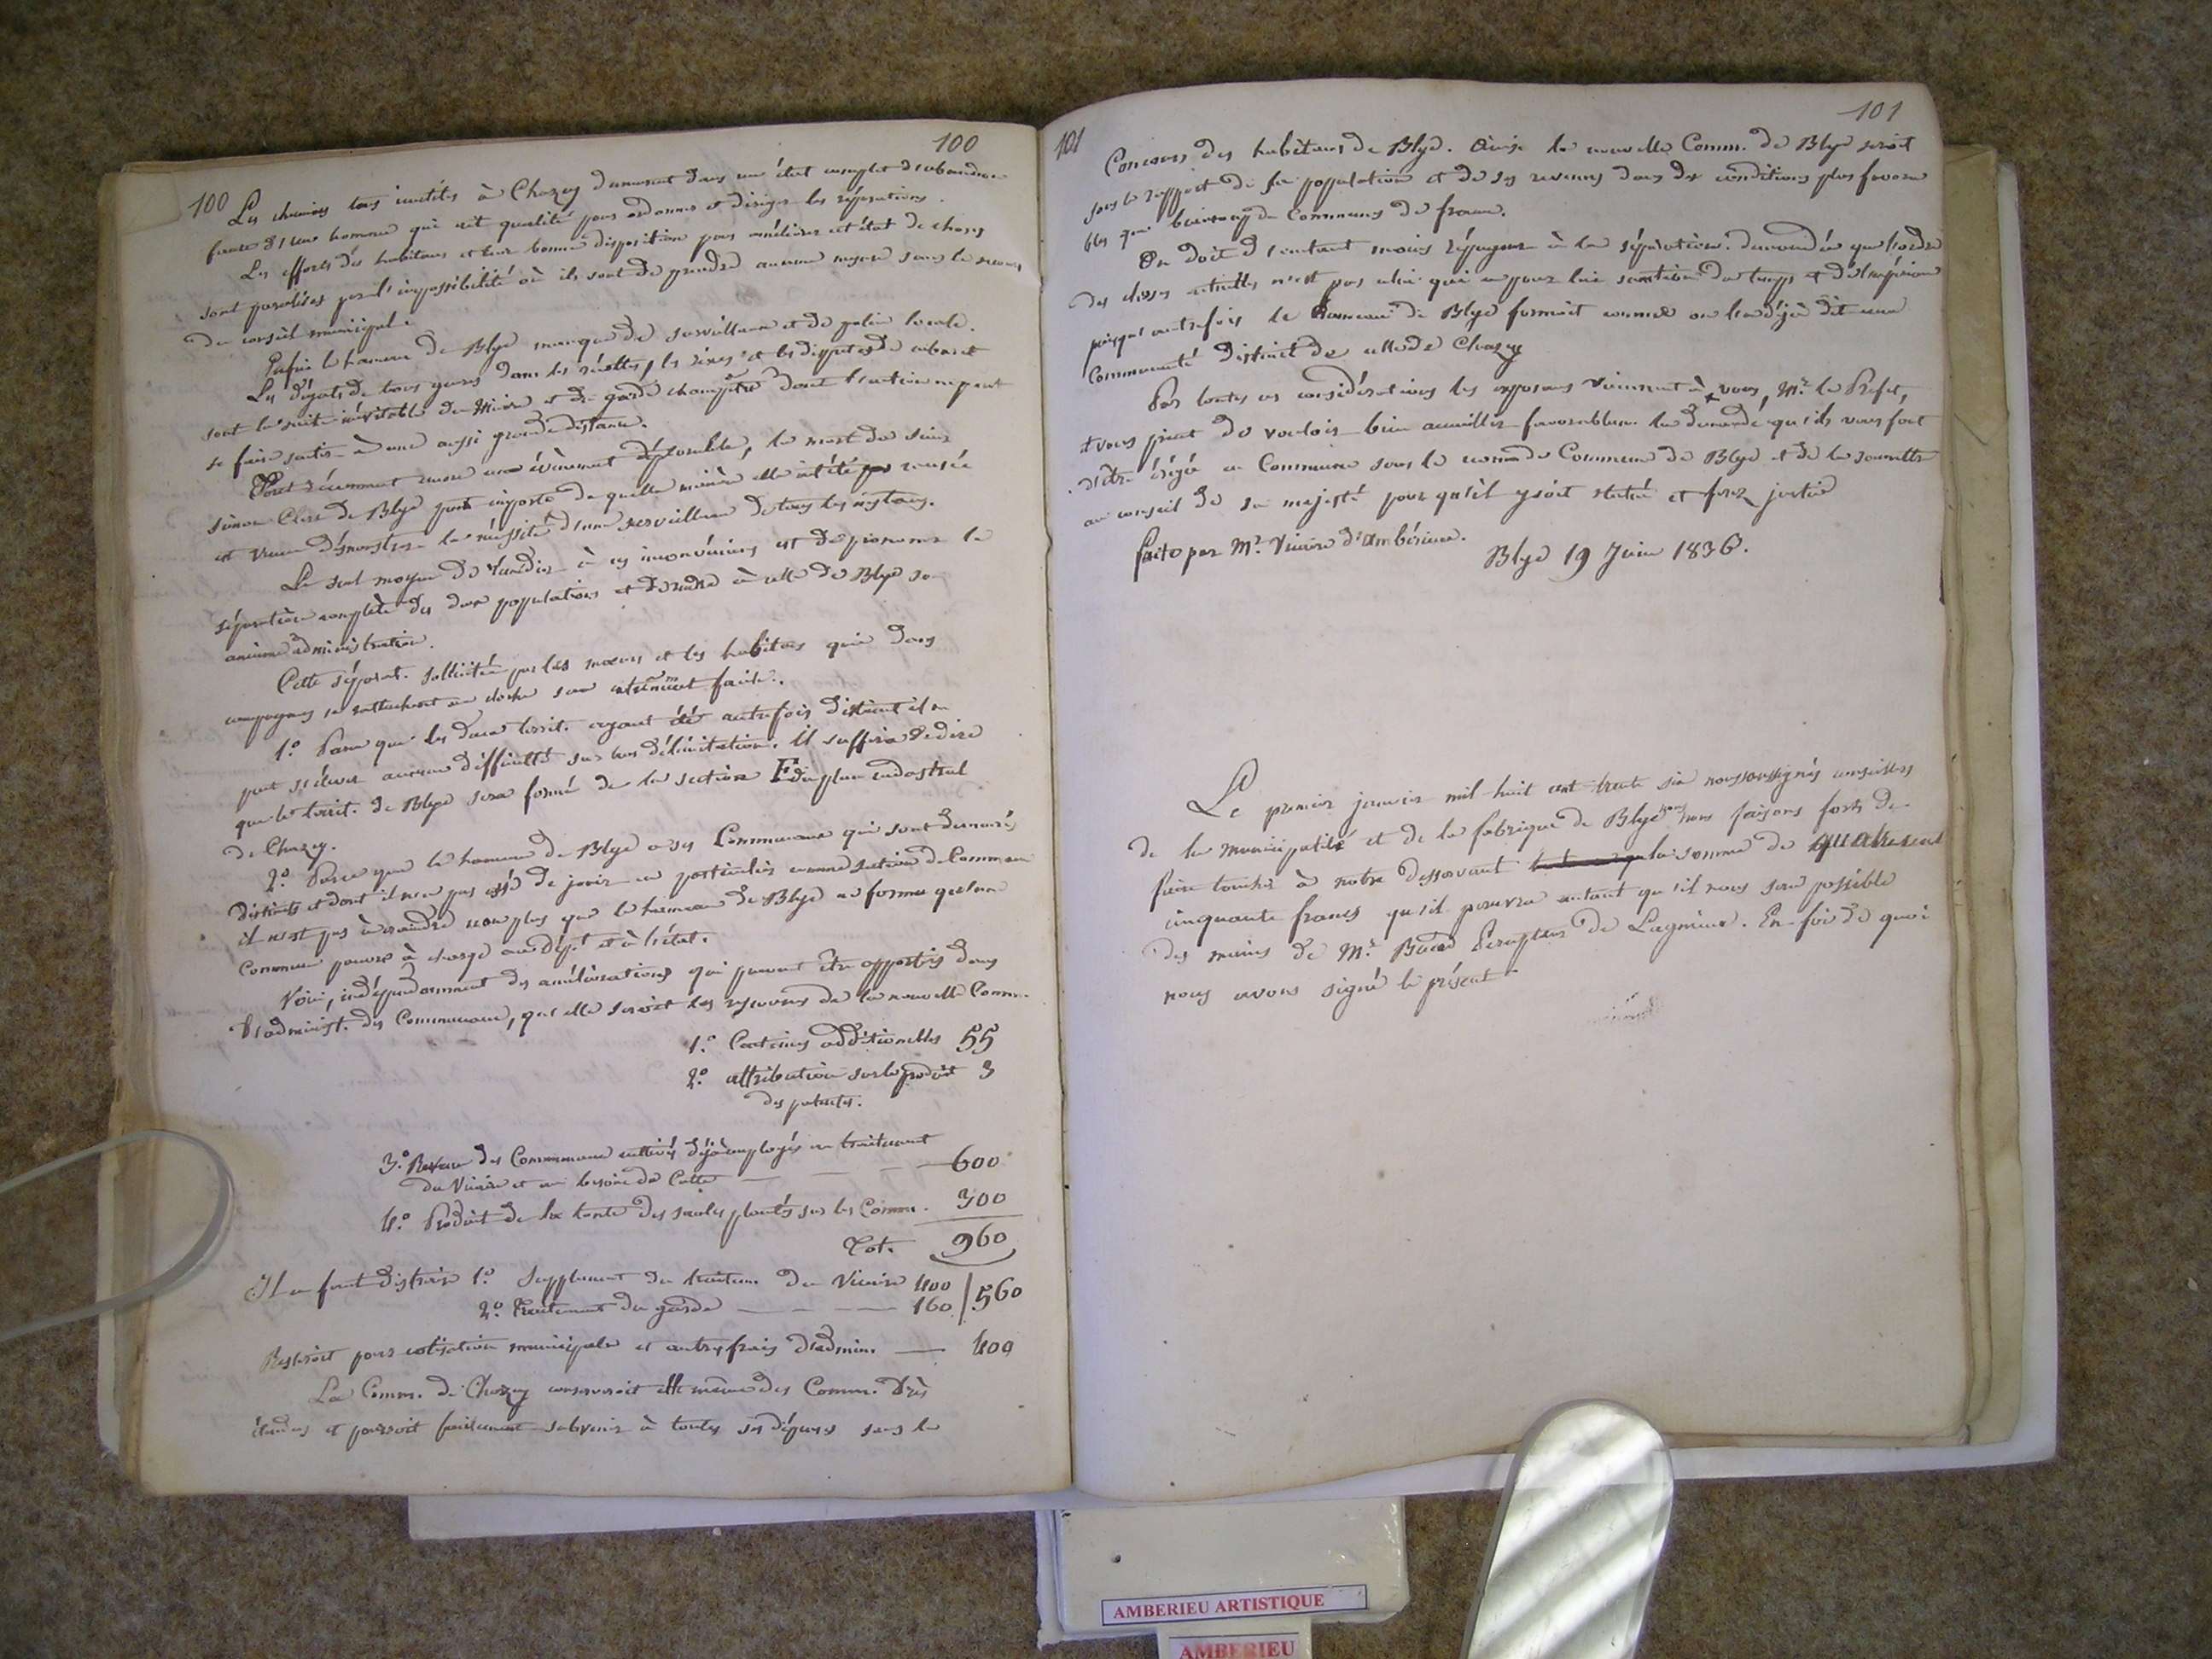 100
100
Les chemins tous inutités à Chazey demeurent dans un état complet d'abandon
faute d'un homme qui ait qualité pour ordonner et diriger les réparations.
Les efforts des habitans et leur bonne disposition pour améliorer cet état de choses
sont paralisés par l'impossibilité où ils sont de prendre aucune mesure sans le secours
du conseil municipal.
Enfin le hameau de Blye manque de surveillance et de police locale.
Les dégats de tous genres dans les récoltes, les rixes et les disputes de cabaret
sont la suite inévitable du Maire et du garde champêtre dont l'action ne peut
se faire sentir à une aussi grande distance.
Tout récemment encore un évènement déplorable, la mort du sieur
Simon Clerc de Blye peu importe de quelle manière elle ait été causée
est venue démonstrer la nécessité d'une surveillance de tous les instans.
Le seul moyen de remédier à ces inconvéniens est de prononcer la
séparation complète des deux populations et de rendre à celle de Blye son
ancienne administration.
Cette séparat. sollicitée par les mœurs et les habitans qui dans
campagnes se rattachent au clocher sera extrêmement facile.
1.° Parce que les deux territ. ayant été autrefois distinct il ne
peut s'élever aucune difficulté sur leur délimitation. il suffira de dire
que le territ. de Blye sera formé de la section F du plan cadastral
de Chazey.
2.° Parce que le hameau de Blye a ses Communaux qui sont demeurés
distincts et dont il n'a pas cessé de jouir en particulier comme section de Commune
il n'est pas à craindre non plus que le hameau de Blye ne forme qu'une
Commune pauvre à charge au dépt et à l'état.
Voici, indépendamment des améliorations qui peuvent être apportés dans
l'administ. des Communaux, quelle seroit les ressources de la nouvelle Comm.
1.° Centimes additionelles 55
2.° attribution sur le produit 3
des patentes.
3.° Revenu des Communaux cultivés déjà employés en traitement
du Vicaire et au besoin du Culte — — — 600
4.° Produit de la tonte des saules plantés sur les Commu. 300
Tot. 960
Il en faut distraire 1.° Supplement du traitem. du Vicaire 400
2.° Traitement du garde — — — 160 / 560
Resteroit pour cotisation municipale et autres frais d'admin. — 400
La Comm. de Chazey conserveroit elle même des Comm. très
étendus et pourroit facilement subvenir à toutes ses dépenses sans le
101
101
Concours des habitans de Blye. Ainsi la nouvelle Comm. de Blye seroit
sous le rapport de sa population et de ses revenus dans des conditions plus favora
bles que beaucoup de Communes de france.
On doit d'autant moins répugner à la séparation demandée que l'ordre
des choses actuelles n'est pas celui qui a pour lui sanction du temps et de l'expérience
puisque autrefois le hameau de Blye formoit comme on l'a déjà dit une
Communauté distinct de celle de Chazey
Par toutes ces considérations les exposans viennent à vous, Mr. le Prefet,
et vous prient de vouloir bien accueillir favorablem. la demande qu'ils vous font
d'être érigée en Commune sous le nom de Commune de Blye et de la soumettre
au conseil de sa majesté pour qu'il y soit statué et ferez justice
faite par Mr. Vicaire d'ambérieux.
Blye 19 Juin 1836.
Le premier janvier mil huit cent trente six nous soussignés conseillers
de la municipalité et de la fabrique de Blye nous nous faisons forts de
faire toucher à notre desservant la somme de quatre cent
cinquante francs qu'il pourra autant qu'il nous sera possible
des mains de Mr. Percepteur de Lagnieux. En foi de quoi
nous avons signé le présent
AMBERIEU ARTISTIQUE
AMBERIEU